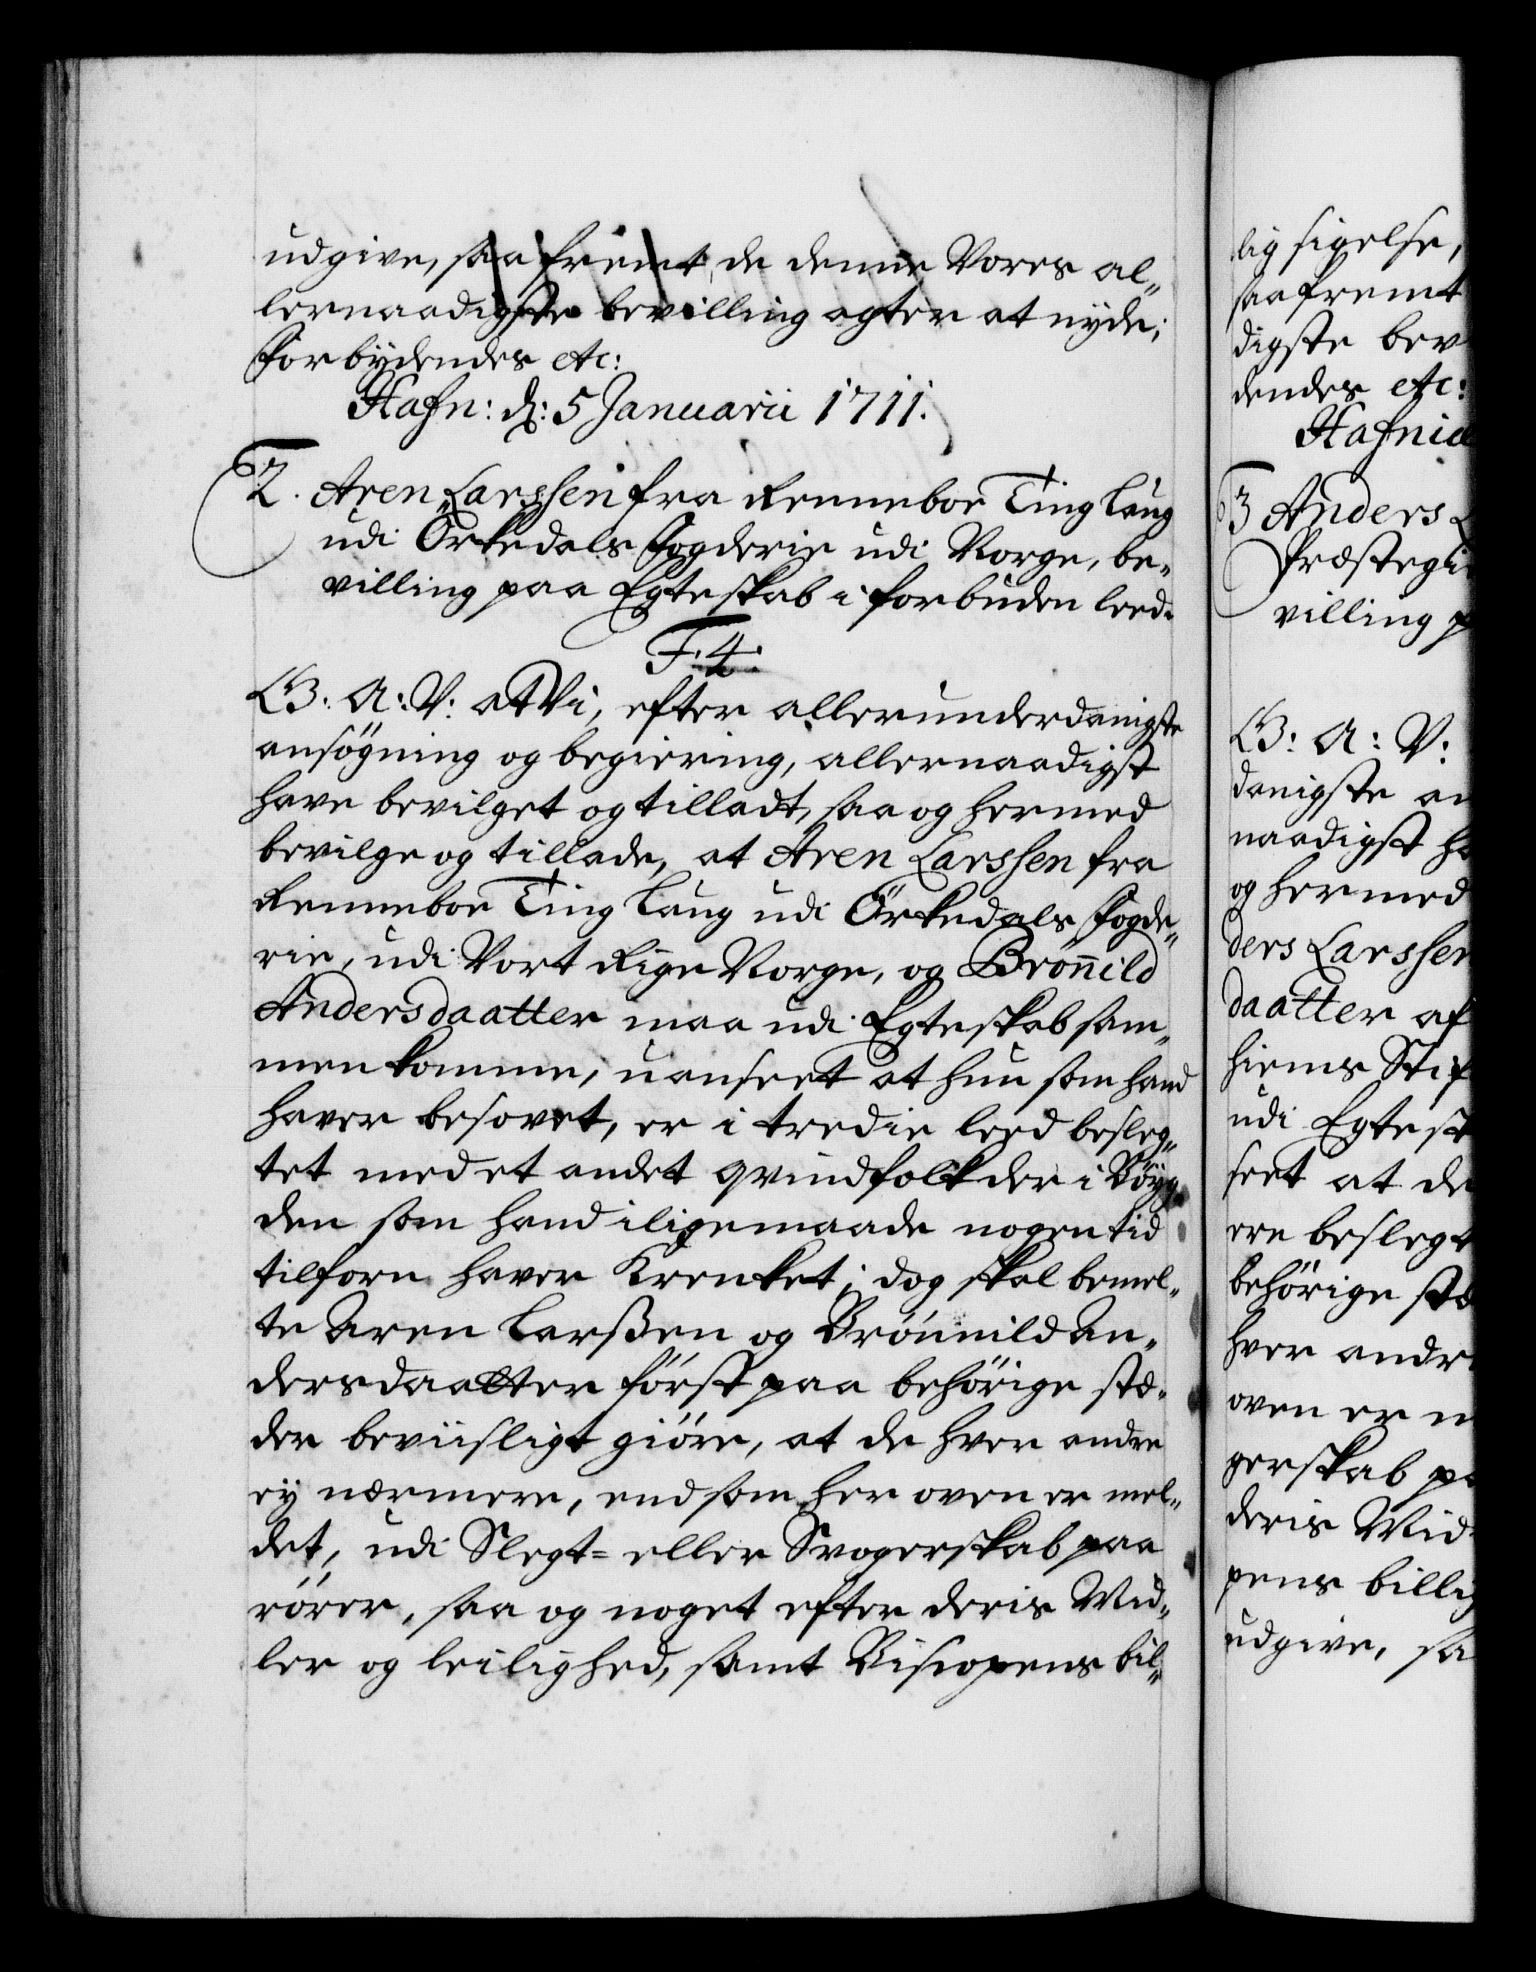 udgive, saa fremt de denne Vores al„
lernaadigste bevilling agter at nyde;
Forbydendes etc:
Hafn: d: 5 Januarii 1711.
2. Aren Larssen fra Renneboe Ting Laug
udi Örkedals Fogderie udi Norge, be„
villing paa Egteskab i forbuden leed.
F. 4.
G: A: V: at Vi, efter allerunderdanigste
ansögning og begiering, allernaadigst
have bevilget og tilladt, saa og hermed
bevilge og tillade, at Aren Larssen fra
Renneboe Ting Laug udi Örkedals Fogde„
rie, udi Vort Rige Norge, og Brönnild
Andersdaatter maa udi Egteskab sam„
men komme, uanseet at hun som hand
haver besovet, er i tredie leed besleg„
tet med et andet qvindfolk der i Böyg„
den som hand i ligemaade nogen tid
tilforn haver Krenket; dog skal bemel„
te Aren Larßen og Brönnild An„
dersdaatter först paa behörige stæ„
der beviisligt giöre, at de hver andre
ey nærmere, end som her oven er mel„
det, udi Slegt= eller Svogerskab paa
rörer, saa og noget efter deris Mid„
ler og leilighed, samt Biscopens bil„
lig sigelse,
saafremt
digste bev
dendes etc:
Hafniæ
3 Anders L
Præstegi
villing p
G: A: V:
danigste an
naadigst ha
og hermed
ders Larssen
daatter af
hiems Stif
udi Egtesk
seet at de
ere beslegt
behörige stæ
hver andre
oven er m
gerskab pa
deris Mid
pens billig
udgive, sa